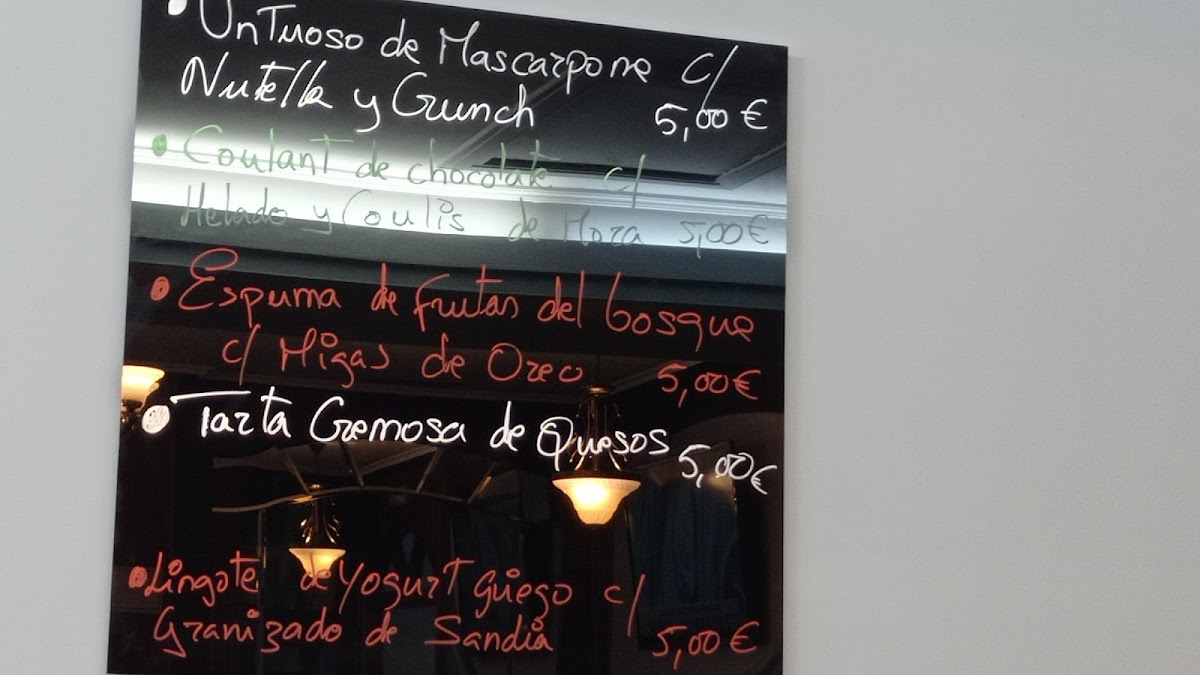 • Untuoso de Mascarpone c/
Nutella y Crunch 5,00 €
• Coulant de chocolate c/
Helado y Coulis de Mora 5,00 €
• Espuma de frutas del bosque
c/ Migas de Oreo 5,00 €
• Tarta Cremosa de Quesos 5,00 €
• Lingote de Yogurt güego c/
Granizado de Sandia 5,00 €